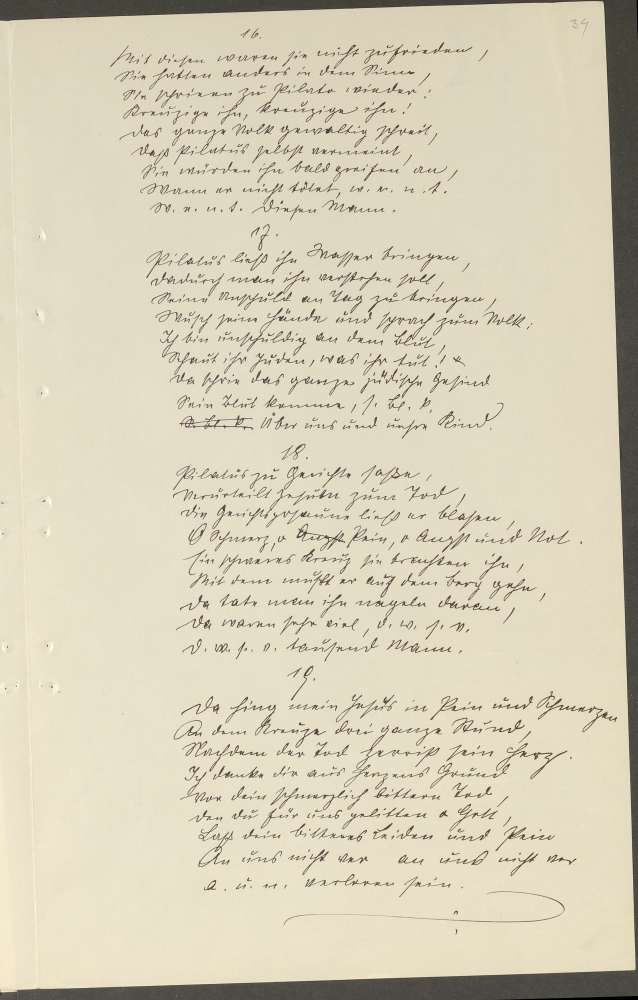 39
16.
Mit diesen waren sie nicht zufrieden,
Sie hatten anders in dem Sinne,
Sie schrieen zu Pilato wieder:
Kreuzige ihn, kreuzige ihn!
Das ganze Volk gewaltig schreit,
Daß Pilatus selbst vermeint,
Sie würden ihn bald greifen an,
Wann er nicht tötet, w. e. n. t.
W. e. n. t. diesen Mann.
17.
Pilatus ließ ihn Wasser bringen,
Dadurch man ihn verstehen soll,
Seine Unschuld an Tag zu bringen,
Wusch seine Hände und sprach zum Volk:
Ich bin unschuldig an dem Blut,
Schaut ihr Juden, was ihr tut!
Da schrie das ganze jüdische Gesind
Sein Blut komme, s. Bl. k.
S. Bl. k. Über uns und unsre Kind.
18.
Pilatus zu Gerichte saße,
Verurteilt Jesum zum Tod,
Die Gerichtsposaune ließ er blasen,
O Schmerz, o Angst Pein, o Angst und Not.
Ein schweres Kreuz sie brachten ihn,
Mit dem mußt er auf dem Berg gehn,
Da tate man ihn nageln daran,
Da waren sehr viel, d. w. s. v.
D. w. s. v. tausend Mann.
19.
Da hing mein Jesus in Pein und Schmerzen
An dem Kreuze drei ganze Stund,
Nachdem der Tod zerriß sein Herz.
Ich danke dir aus Herzens Grund
Vor dein schmerzlich bittern Tod,
Den du für uns gelitten o Gott,
Laß dein bitteres Leiden und Pein
An uns nicht ver an uns nicht ver
a. u. n. verloren sein.